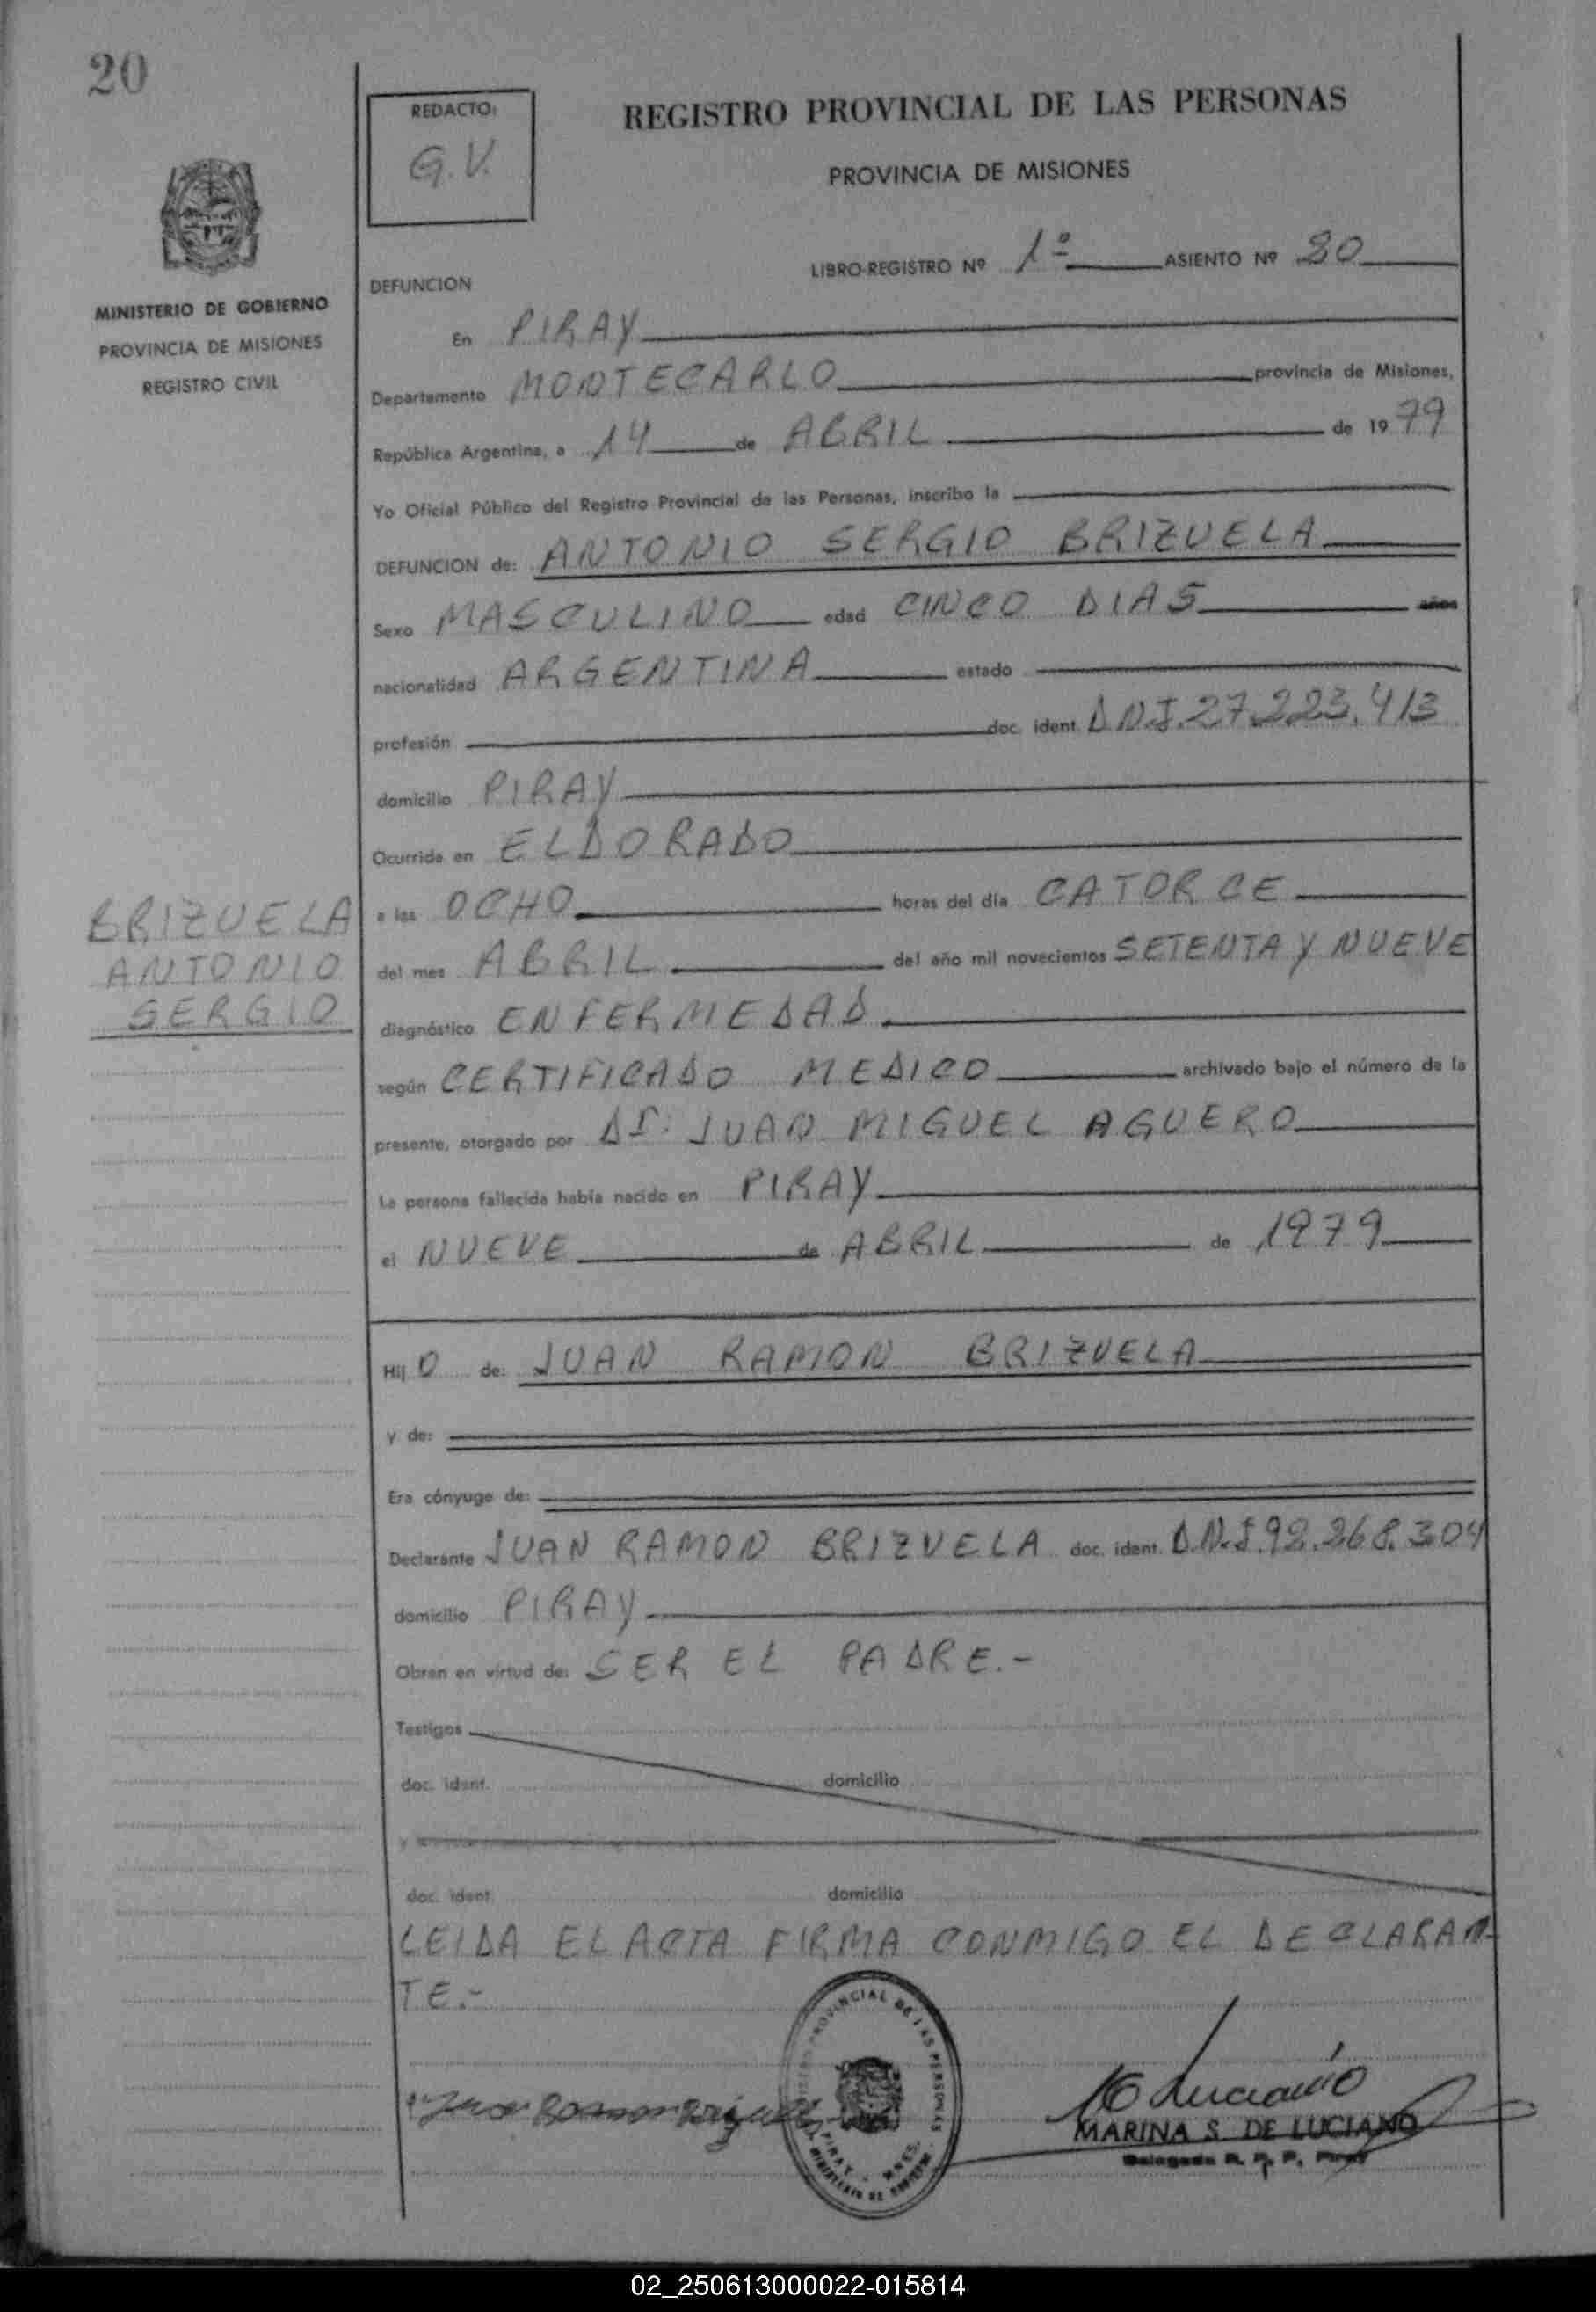 20
REDACTO:
G.V.
REGISTRO PROVINCIAL DE LAS PERSONAS
PROVINCIA DE MISIONES
LIBRO-REGISTRO Nº 1º ASIENTO Nº 20
MINISTERIO DE GOBIERNO
PROVINCIA DE MISIONES
REGISTRO CIVIL
DEFUNCION
En PIRAY
Departamento MONTECARLO provincia de Misiones,
República Argentina, a 14 de ABRIL de 1979
Yo Oficial Público del Registro Provincial de las Personas, inscribo la
DEFUNCION de: ANTONIO SERGIO BRIZUELA
Sexo MASCULINO edad CINCO DIAS años
nacionalidad ARGENTINA estado
profesión doc. ident. D.N.I. 27.223.413
domicilio PIRAY
Ocurrida en ELDORADO
a las OCHO horas del día CATORCE
del mes ABRIL del año mil novecientos SETENTA Y NUEVE
BRIZUELA
ANTONIO
SERGIO
diagnóstico ENFERMEDAD
según CERTIFICADO MEDICO archivado bajo el número de la
presente, otorgado por Dr. JUAN MIGUEL AGUERO
La persona fallecida había nacido en PIRAY
el NUEVE de ABRIL de 1979
Hij O de: JUAN RAMON BRIZUELA
y de:
Era cónyuge de:
Declarante JUAN RAMON BRIZUELA doc. ident. D.N.I. 92.268.304
domicilio PIRAY
Obran en virtud de: SER EL PADRE.-
Testigos
doc. ident. domicilio
y
doc. ident. domicilio
LEIDA EL ACTA FIRMA CONMIGO EL DECLARAN-
TE.-
PROVINCIAL DE LAS PERSONAS
PIRAY - MNES.
MINISTERIO DE GOBIERNO
Juan Ramon Brizuela
Luciano
MARINA S. DE LUCIANO
Delegada R. P. P. Piray
02_250613000022-015814